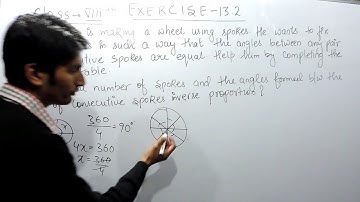 Class → VIIIth EXERCISE-13.2
is making a wheel using spokes He wants to fix
in such a way that the angles between any pair
spokes are equal Help him by completing the
table
number of spokes and the angles formed b/w the
of consecutive spokes inverse proportion?
360/4 = 90°
4x = 360
x = 360/4
x